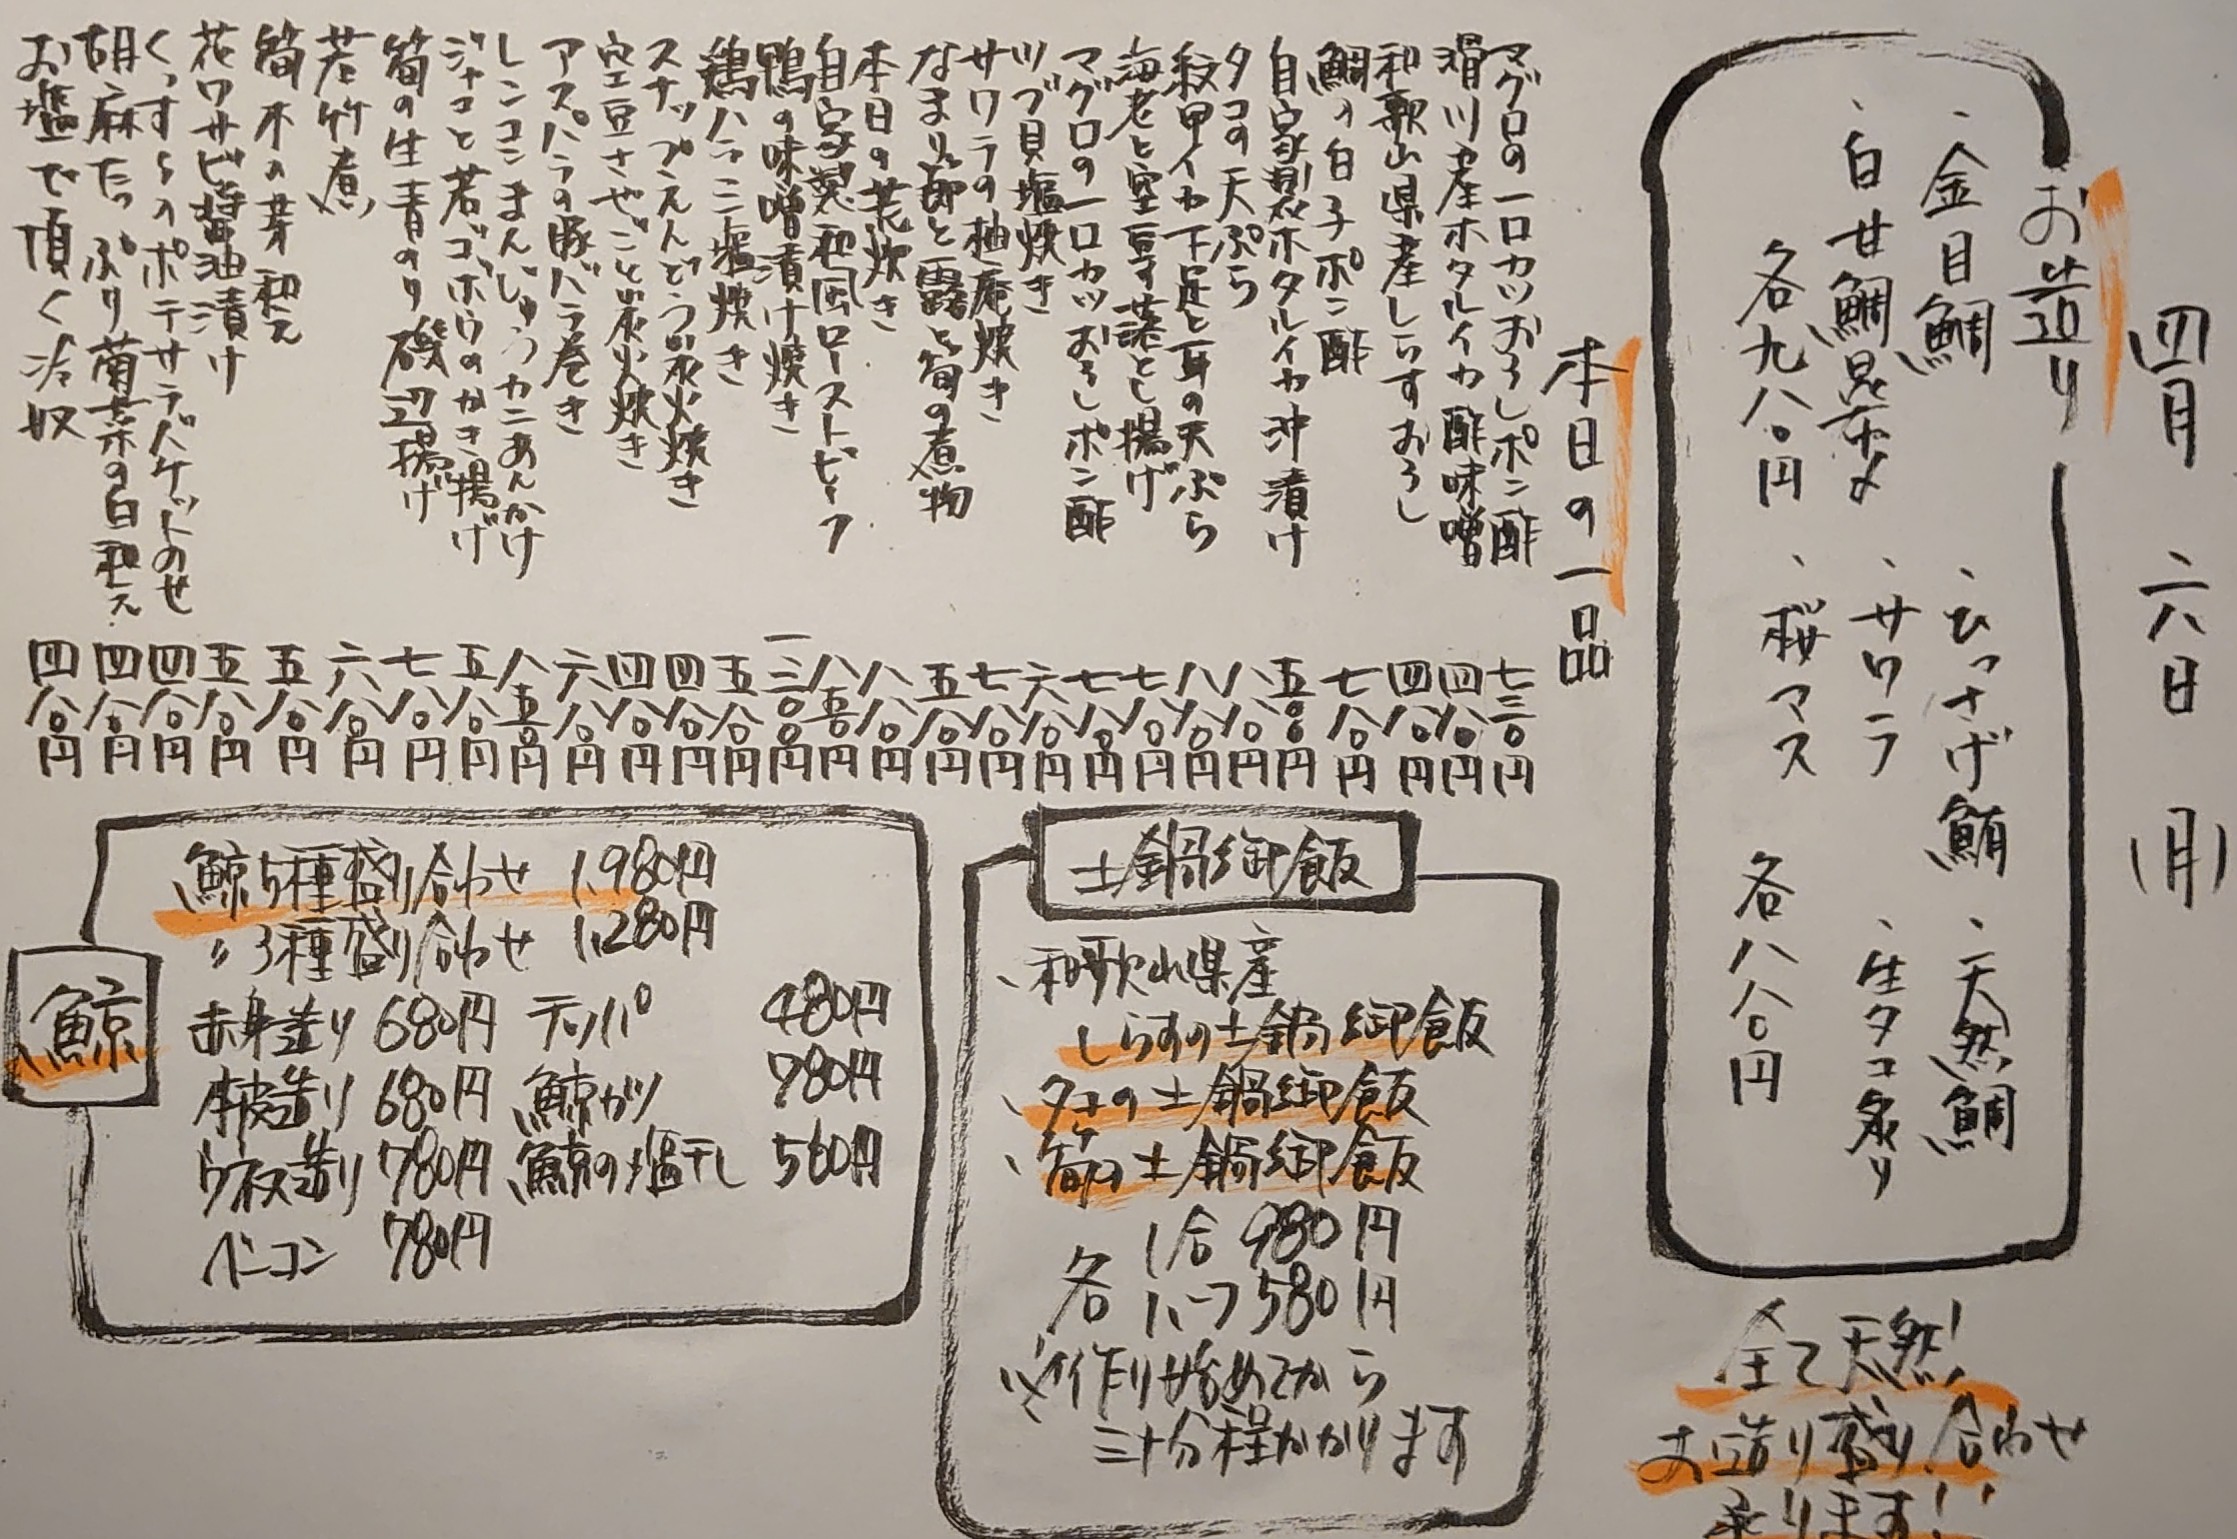 四月 六日 (月)
お造り
、金目鯛 、ひっさげ鮪 、天然鯛
、白甘鯛昆布〆 、サワラ 、生タコ炙り
各九八〇円 、桜マス 各八八〇円
全て天然!
お造り盛り合わせ
承ります!!
本日の一品
マグロの一口カツおろしポン酢 七三〇円
滑川産ホタルイカ酢味噌 四八〇円
和歌山県産しらすおろし 四八〇円
鯛の白子ポン酢 七八〇円
自家製ホタルイカ沖漬け 五〇〇円
タコの天ぷら 八八〇円
紋甲イカ下足と耳の天ぷら 八八〇円
海老と空豆す落とし揚げ 七八〇円
マグロの一口カツおろしポン酢 七八〇円
ツブ貝塩焼き 六八〇円
サワラの柚庵焼き 七八〇円
なまり節と蕗と筍の煮物 五八〇円
本日の荒炊き 八八〇円
自家製和風ローストビーフ 八五〇円
鴨の味噌漬け焼き 一三〇〇円
鶏ハラミ塩焼き 五八〇円
スナップえんどう炭火焼き 四八〇円
空豆さやごと炭火焼き 四八〇円
アスパラの豚バラ巻き 六八〇円
レンコンまんじゅうカニあんかけ 八五〇円
ジャコと若ゴボウのかき揚げ 五八〇円
筍の生青のり磯辺揚げ 七八〇円
若竹煮 六八〇円
筍木の芽和え 五八〇円
花ワサビ醤油漬け 五八〇円
くっすらのポテサラバケットのせ 四八〇円
胡麻たっぷり菊菜の白和え 四八〇円
お塩で頂く冷奴 四八〇円
土鍋御飯
、和歌山県産
しらすの土鍋御飯
、タコの土鍋御飯
、筍の土鍋御飯
各 1合 980円
ハーフ 580円
※作り始めてから
三十分程かかります
鯨
鯨5種盛り合わせ 1,980円
〃3種盛り合わせ 1,280円
赤身造り 680円 テッパ 480円
本皮造り 680円 鯨カツ 780円
ウネス造り 780円 鯨の塩干し 560円
ベーコン 780円